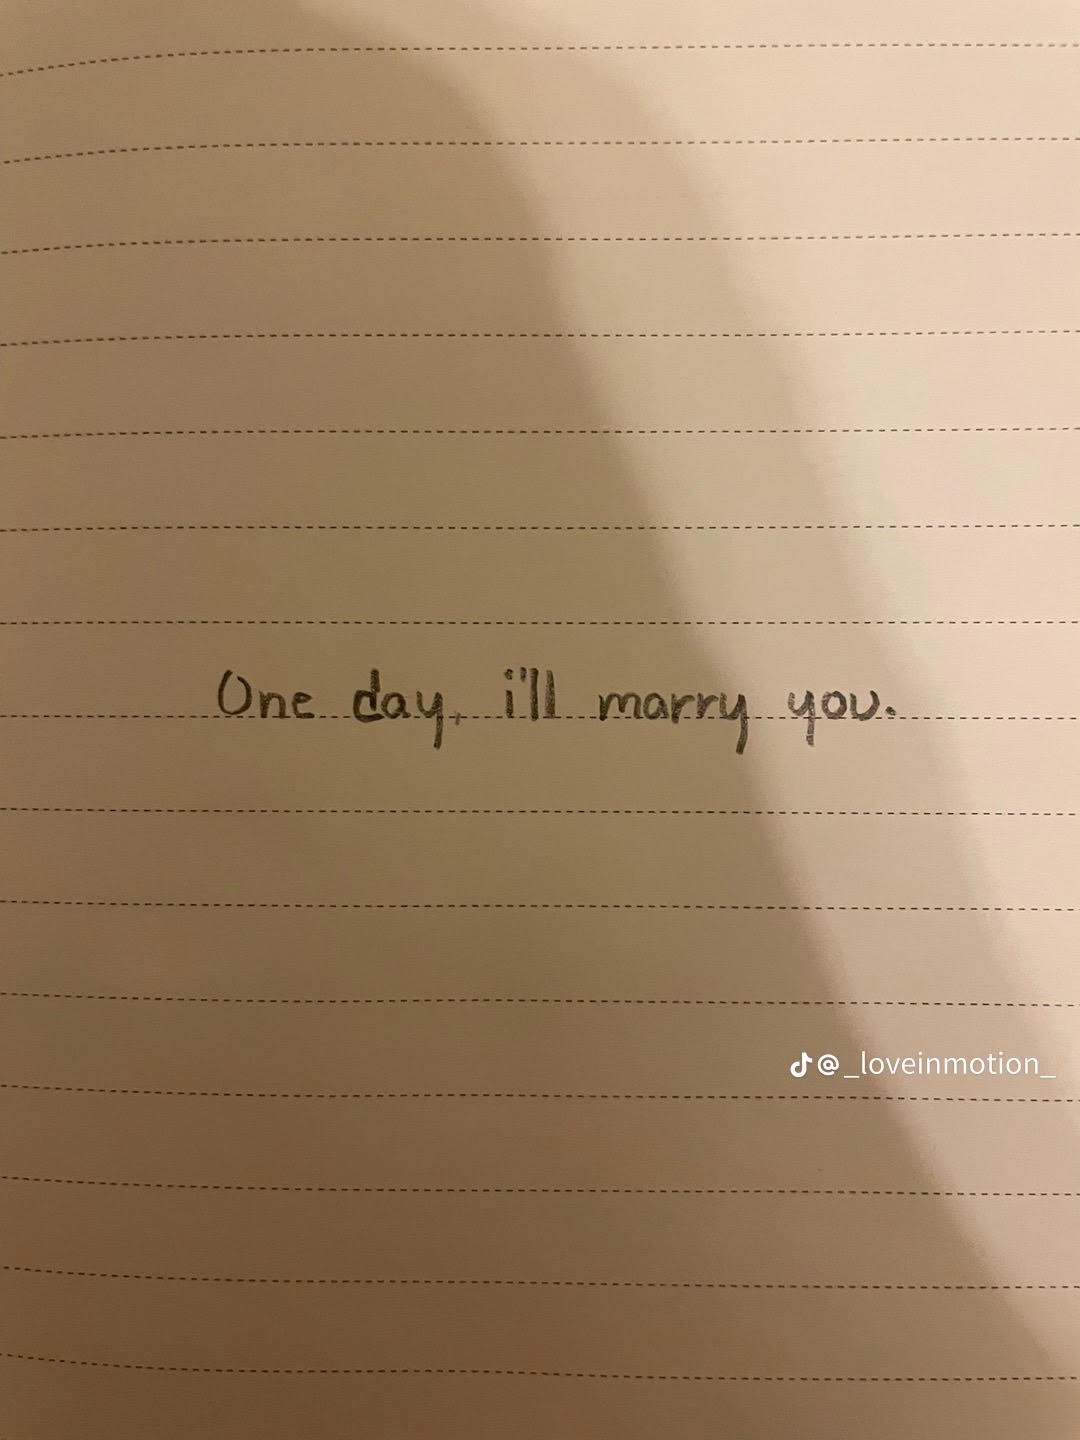 One day, i'll marry you.
@_loveinmotion_